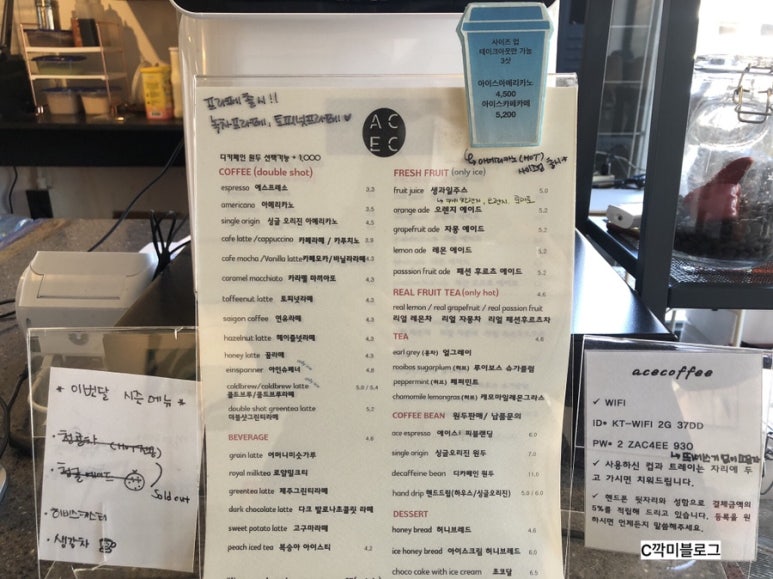 사이즈 업
테이크아웃만 가능
3샷
아이스아메리카노
4,500
아이스카페라떼
5,200
AC
EC
디카페인 원두 선택가능 + 1,000
COFFEE (double shot)
espresso 에스프레소 3.3
americano 아메리카노 3.5
single origin 싱글 오리진 아메리카노 4.5
cafe latte /cappuccino 카페라떼 / 카푸치노 3.9
cafe mocha /Vanilla latte 카페모카/바닐라라떼 4.3
caramel macchiato 카라멜 마끼아또 4.3
toffeenut latte 토피넛라떼 4.3
saigon coffee 연유라떼 4.3
hazelnut latte 헤이즐넛라떼 4.3
honey latte 꿀라떼 4.3
einspanner 아인슈페너 4.8
coldbrew/coldbrew latte 5.0 / 5.4
콜드브루/콜드브루라떼
double shot greentea latte 5.2
더블샷그린티라떼
BEVERAGE 4.8
grain latte 어머니미숫가루
royal milktea 로얄밀크티
greentea latte 제주그린티라떼
dark chocolate latte 다크 발로나초콜릿 라떼
sweet potato latte 고구마라떼
peach iced tea 복숭아 아이스티 4.2
FRESH FRUIT (only ice)
fruit juice 생과일주스 5.0
orange ade 오렌지 에이드 5.2
grapefruit ade 자몽 에이드 5.2
lemon ade 레몬 에이드 5.2
passsion fruit ade 패션 후르츠 에이드 5.2
REAL FRUIT TEA (only hot) 4.6
real lemon / real grapefruit / real passion fruit
리얼 레몬차 리얼 자몽차 리얼 패션후르츠차
TEA 4.8
earl grey (홍차) 얼그레이
rooibos sugarplum (허브) 루이보스 슈가플럼
peppermint (허브) 페퍼민트
chamomile lemongras (허브) 캐모마일레몬그라스
COFFEE BEAN 원두판매/ 납품문의
ace espresso 에이스 블렌딩 6.0
single origin 싱글오리진 원두 7.0
decaffeine bean 디카페인 원두 11.0
hand drip 핸드드립(하우스/싱글오리진) 5.0 / 6.0
DESSERT
honey bread 허니브레드 4.6
ice honey bread 아이스크림 허니브레드 6.0
choco cake with ice cream 초코달 6.5
* 이번달 시즌메뉴 *
Sold out
· 생강차
acecoffee
✓ WIFI
ID• KT-WIFI 2G 37DD
PW• 2 ZAC4EE 930
✓ 사용하신 컵과 트레이는 자리에 두
고 가시면 치워드립니다.
✓ 핸드폰 뒷자리와 성함으로 결제금액의
5%를 적립해 드리고 있습니다. 등록을 원
하시면 언제든지 말씀해주세요.
C깍미블로그